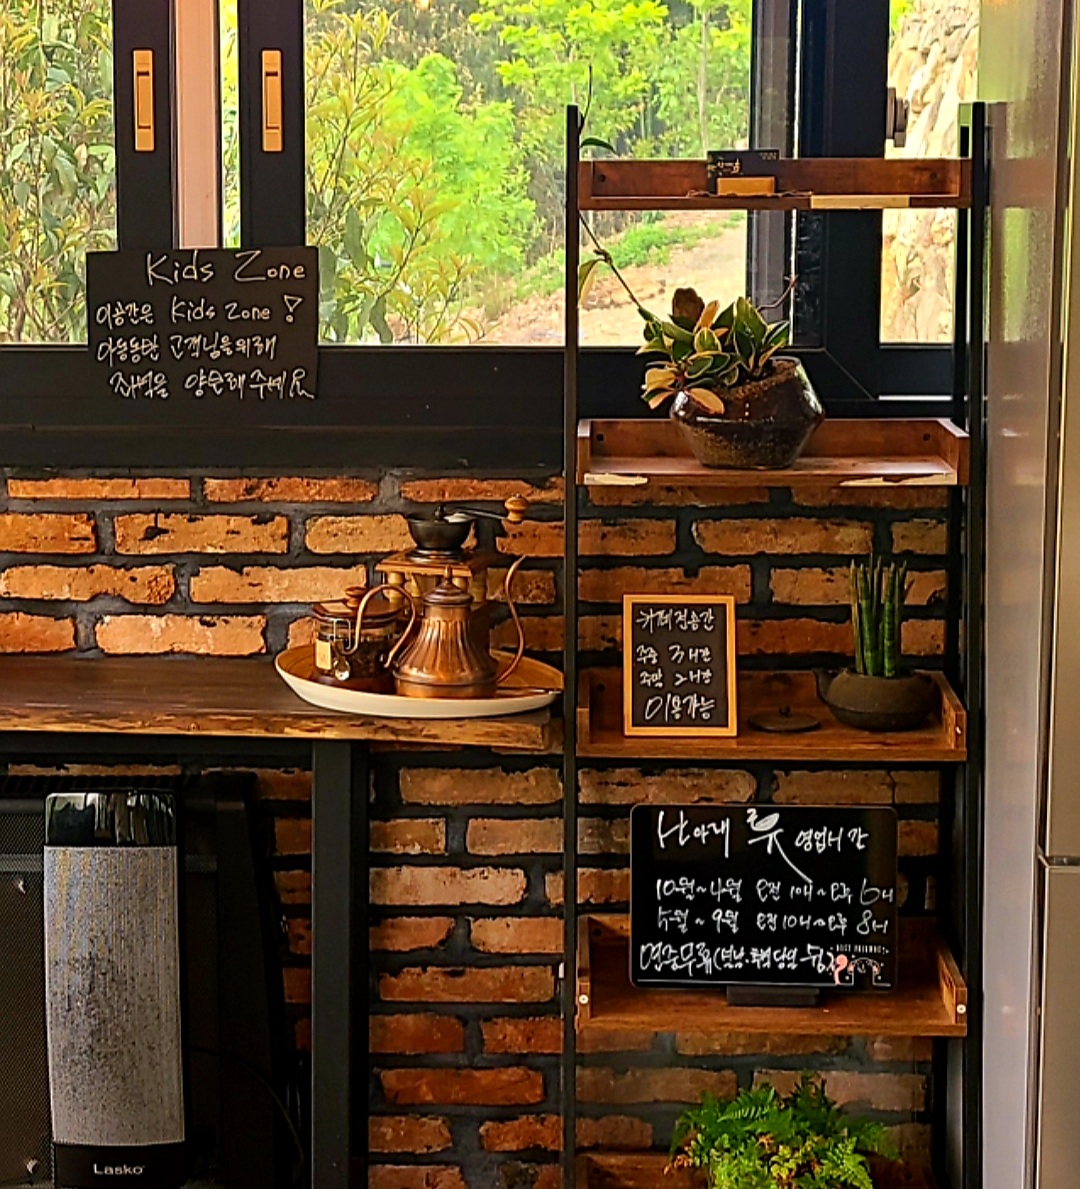 Kids Zone
이공간은 Kids zone !
아동동반 고객님을위해
좌석을 양보해 주세요
카페 적정시간
주중 3시간
주말 2시간
이용가능
산아래 휴 영업시간
10월~4월 오전 10시~오후 6시
5월~9월 오전 10시~오후 8시
연중무휴(설날.추석 당일
Lasko